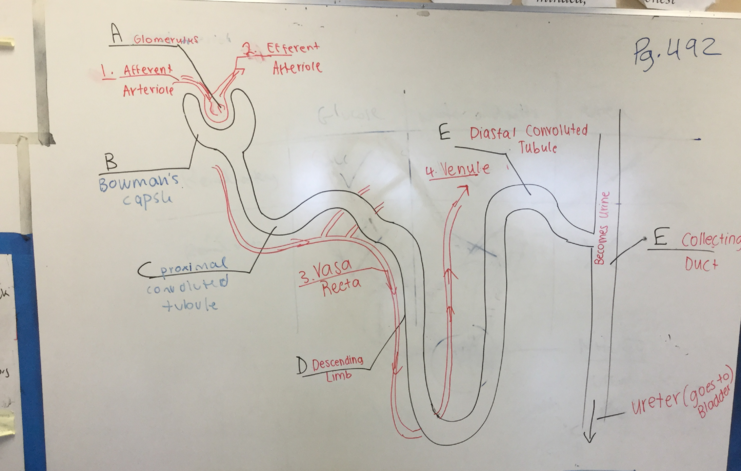 Pg. 492
A Glomerulus
2. Efferent
Arteriole
1. Afferent
Arteriole
E Diastal Convoluted
Tubule
B
Bowman's
capsu
4. Venule
Becomes Urine
E Collecting
Duct
C proximal
convoluted
tubule
3. Vasa
Recta
D Descending
Limb
ureter (goes to)
Bladder